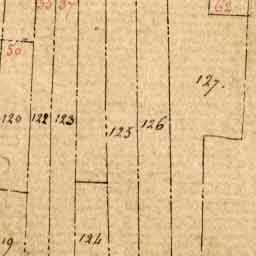 62
50
127.
120 122 123 125 126
124